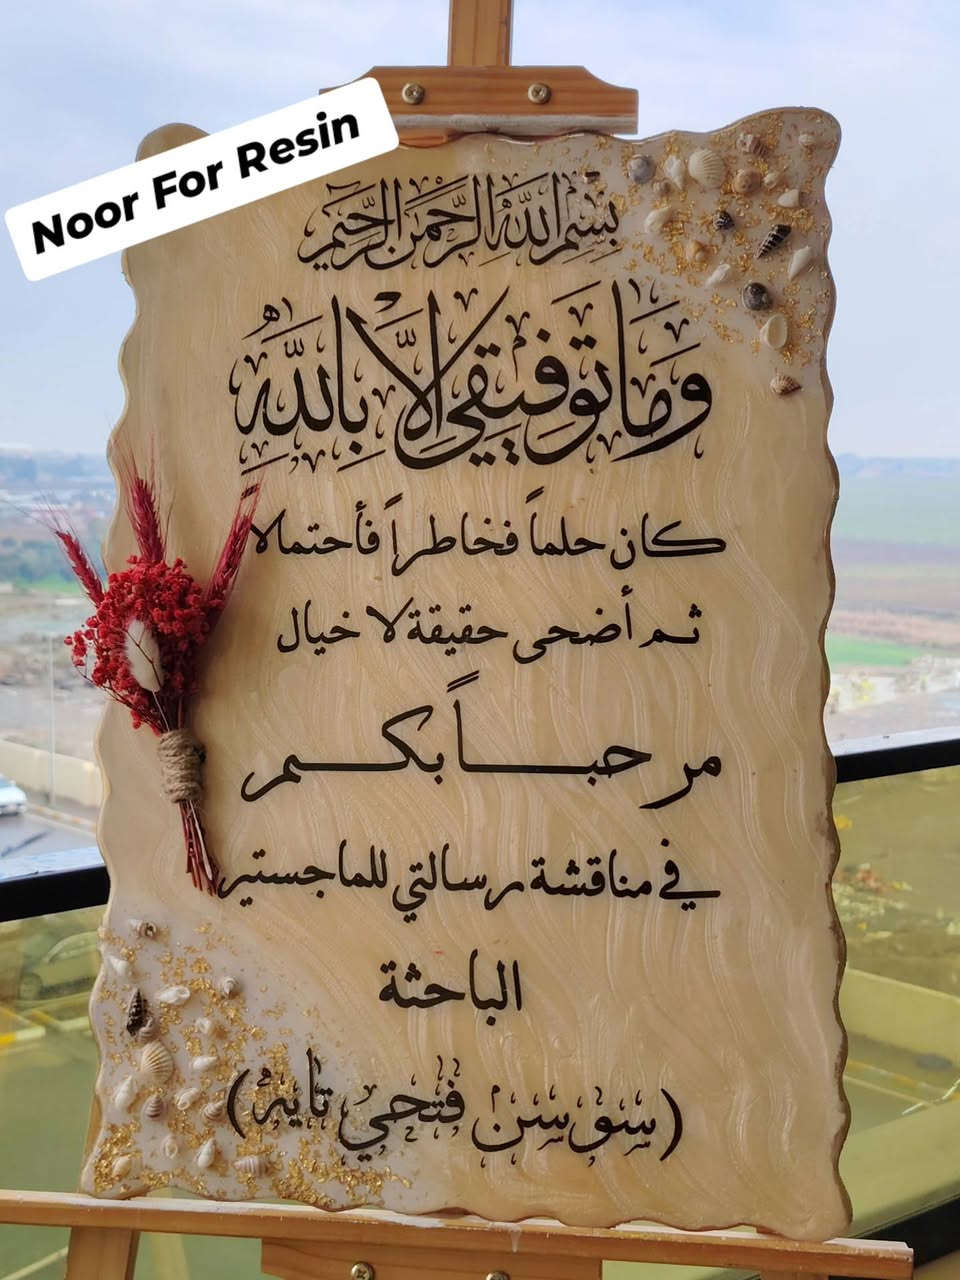 Noor For Resin
بِسْمِ اللَّهِ الرَّحْمَنِ الرَّحِيمِ
وَمَا تَوْفِيقِي إِلَّا بِاللَّهِ
كان حلماً فخاطراً فأحتمالا
ثم أضحى حقيقة لا خيال
مرحباً بكم
في مناقشة رسالتي للماجستير
الباحثة
(سوسن فتحي تايه)